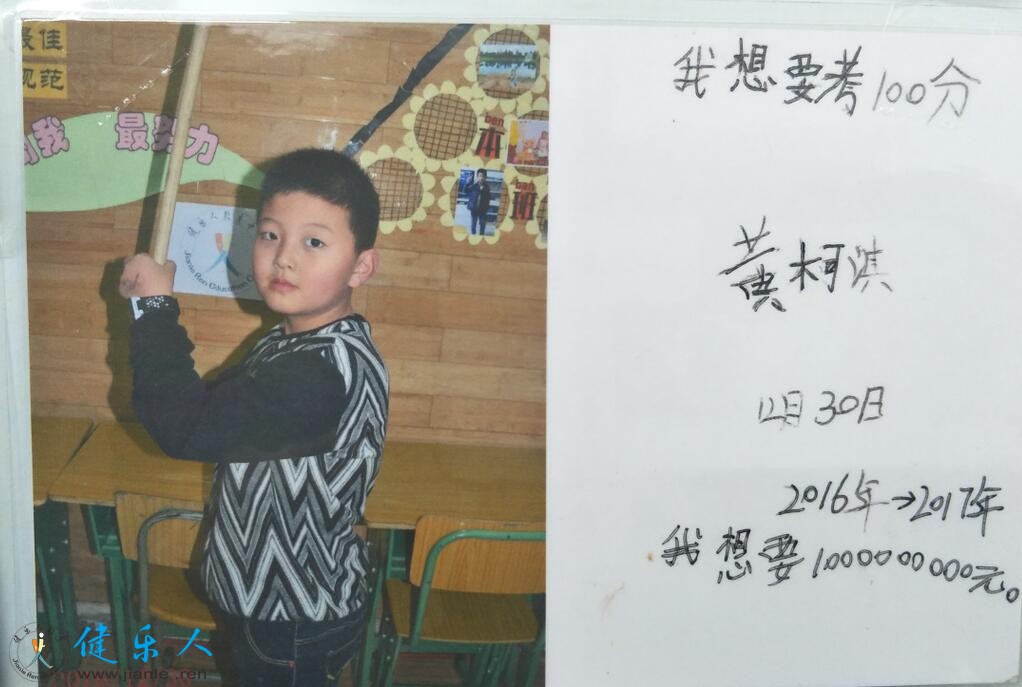 最佳
规范
我 最努力
ben
本
ban
班
Jianle Ren Education
我想要考100分
黄柯淇
12月30日
2016年→2017年
我想要1000000000元。
健乐人
www.jianle.ren